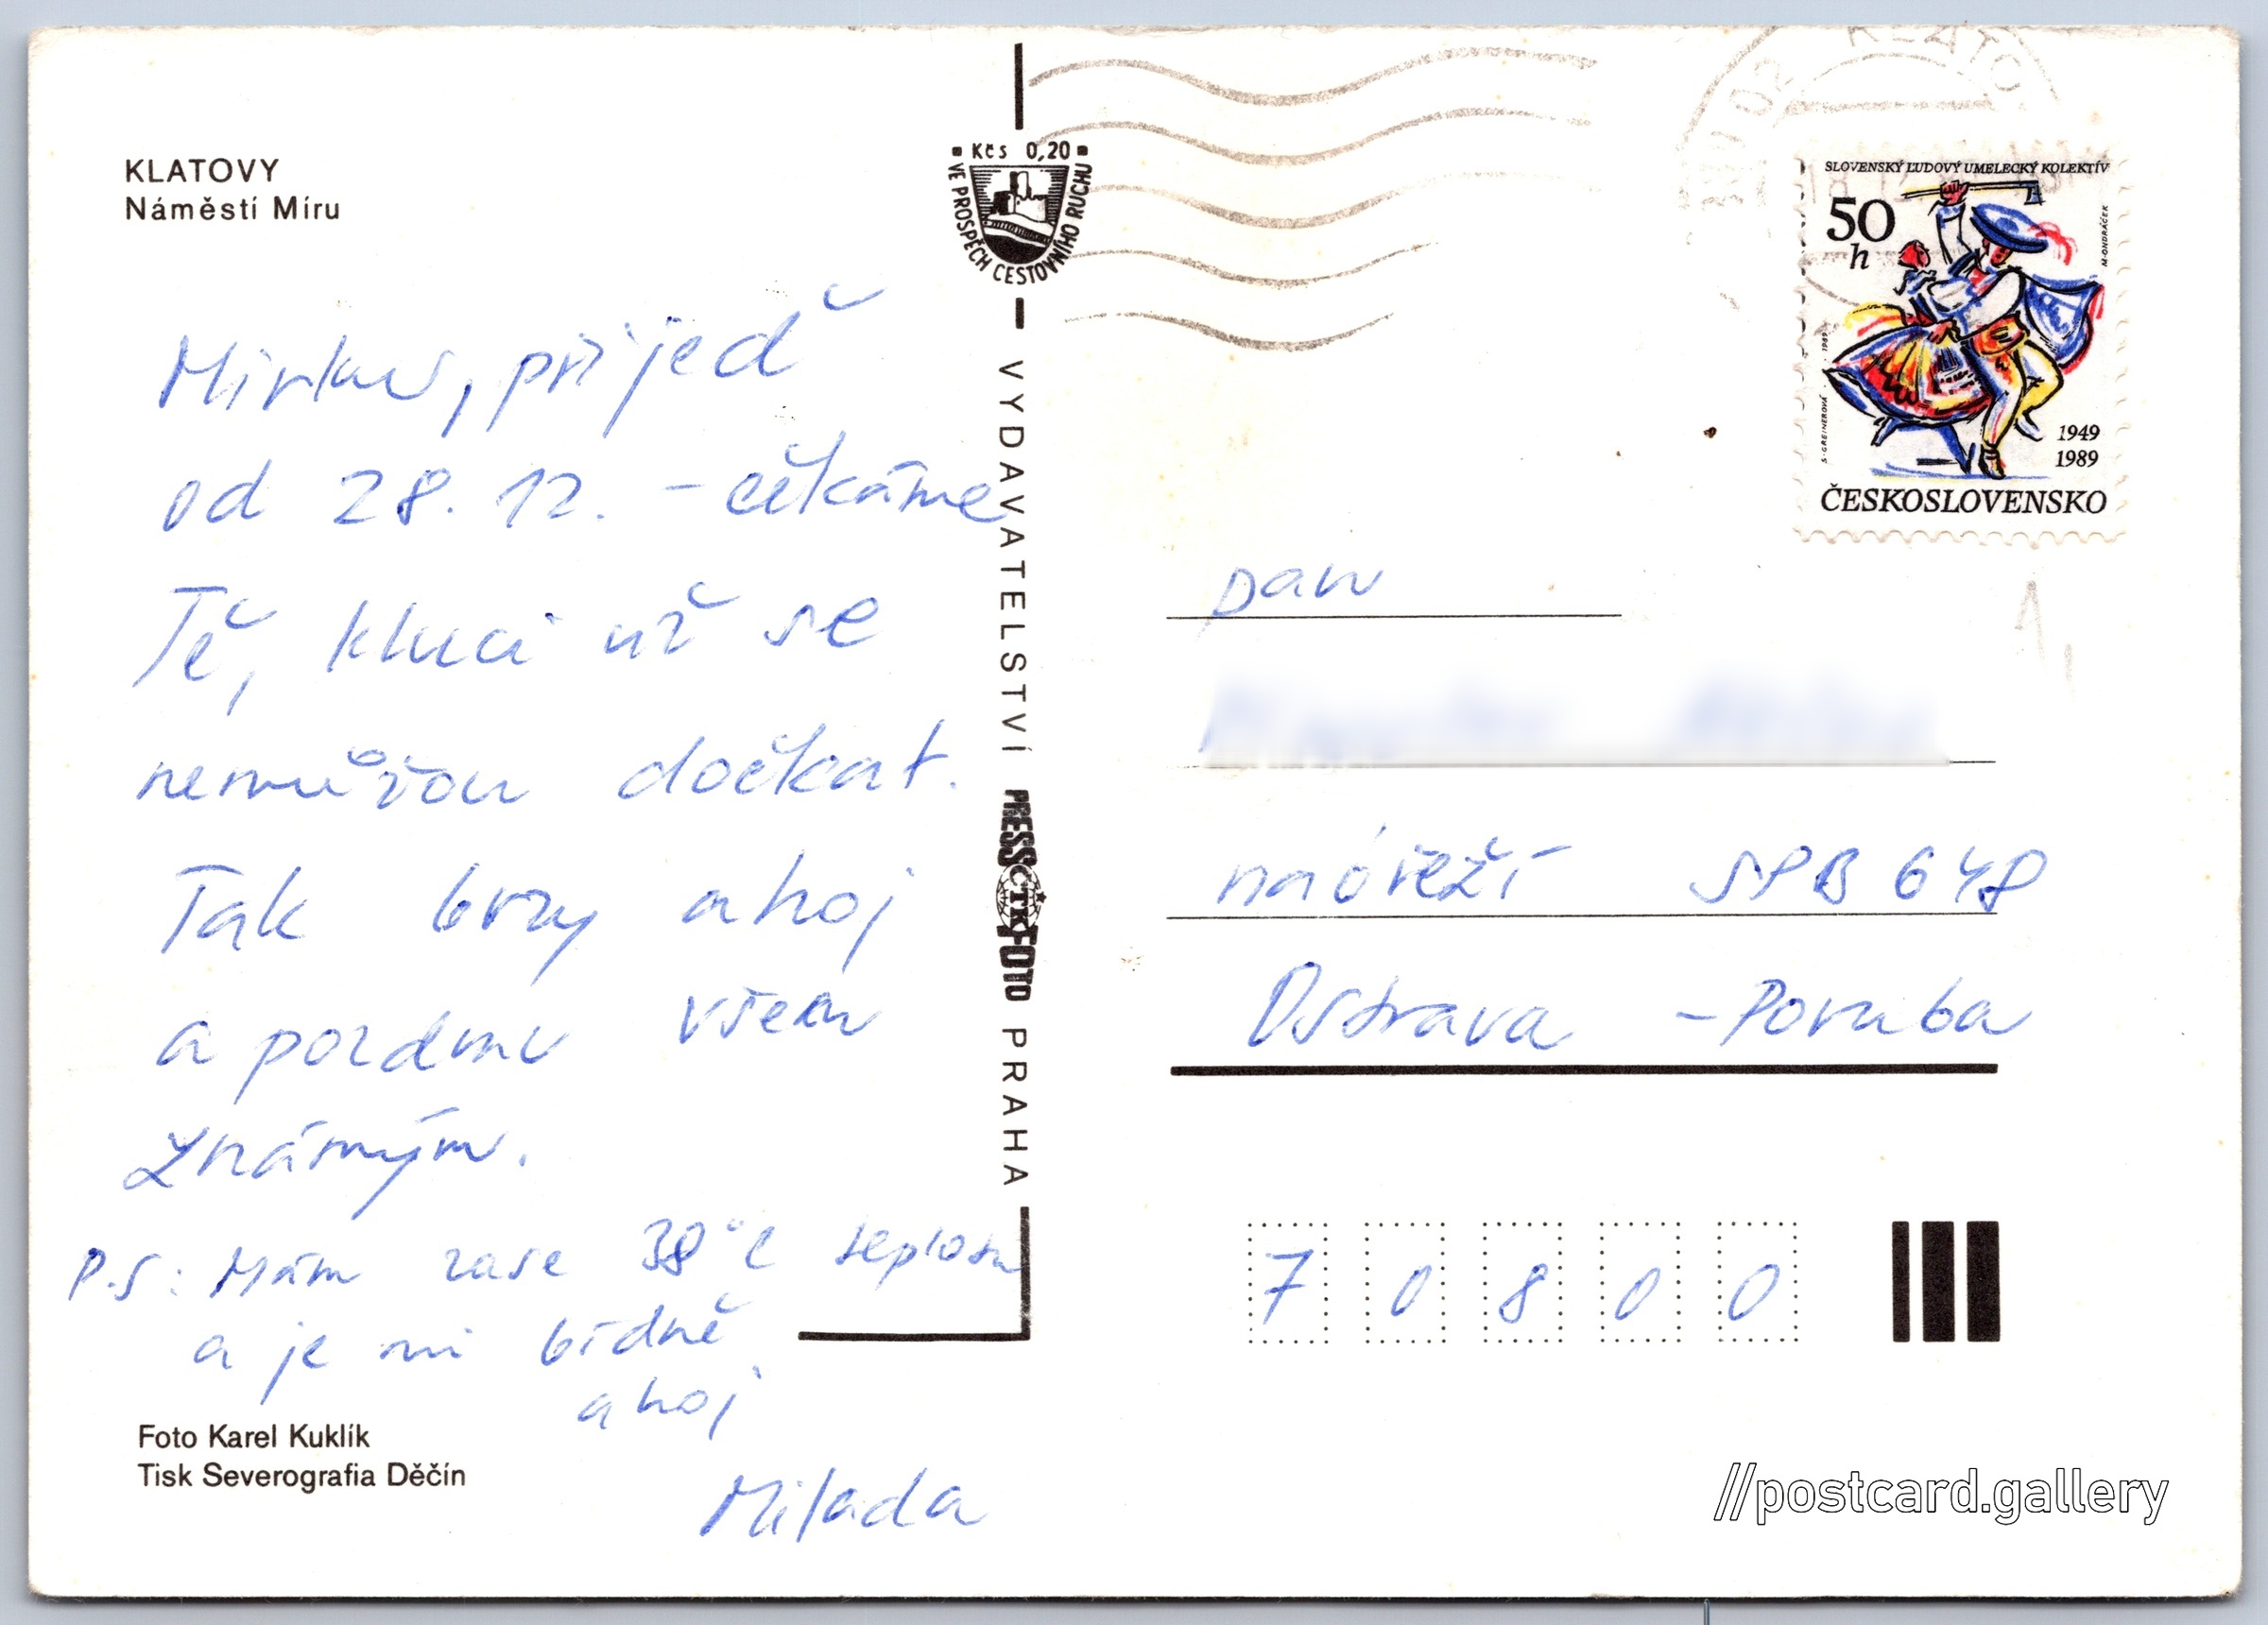 KLATOVY
Náměstí Míru
Mirku, přijeď
od 28. 12. - čekáme
Tě, kluci už se
nemůžou dočkat.
Tak brzy ahoj
a pozdrav všem
známým.
P.S: Mám zase 38°C teplotu
a je mi bídně
ahoj
Milada
Foto Karel Kuklík
Tisk Severografia Děčín
Kčs 0,20
VE PROSPĚCH CESTOVNÍHO RUCHU
VYDAVATELSTVÍ PRESSFOTO PRAHA
ČTK
SLOVENSKÝ ĽUDOVÝ UMELECKÝ KOLEKTÍV
50
h
M. ONDRÁČEK
S. GREINEROVÁ 1989
1949
1989
ČESKOSLOVENSKO
pan
nábřeží SPB 648
Ostrava - Poruba
7 0 8 0 0
//postcard.gallery